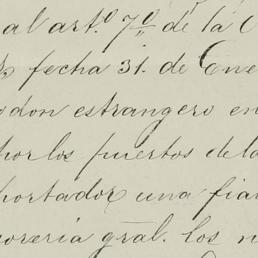 al artº 7º de la C
fecha 31. de Ene
odon estrangero en
por los puertos de la
portador una fian
sorería gral. los n